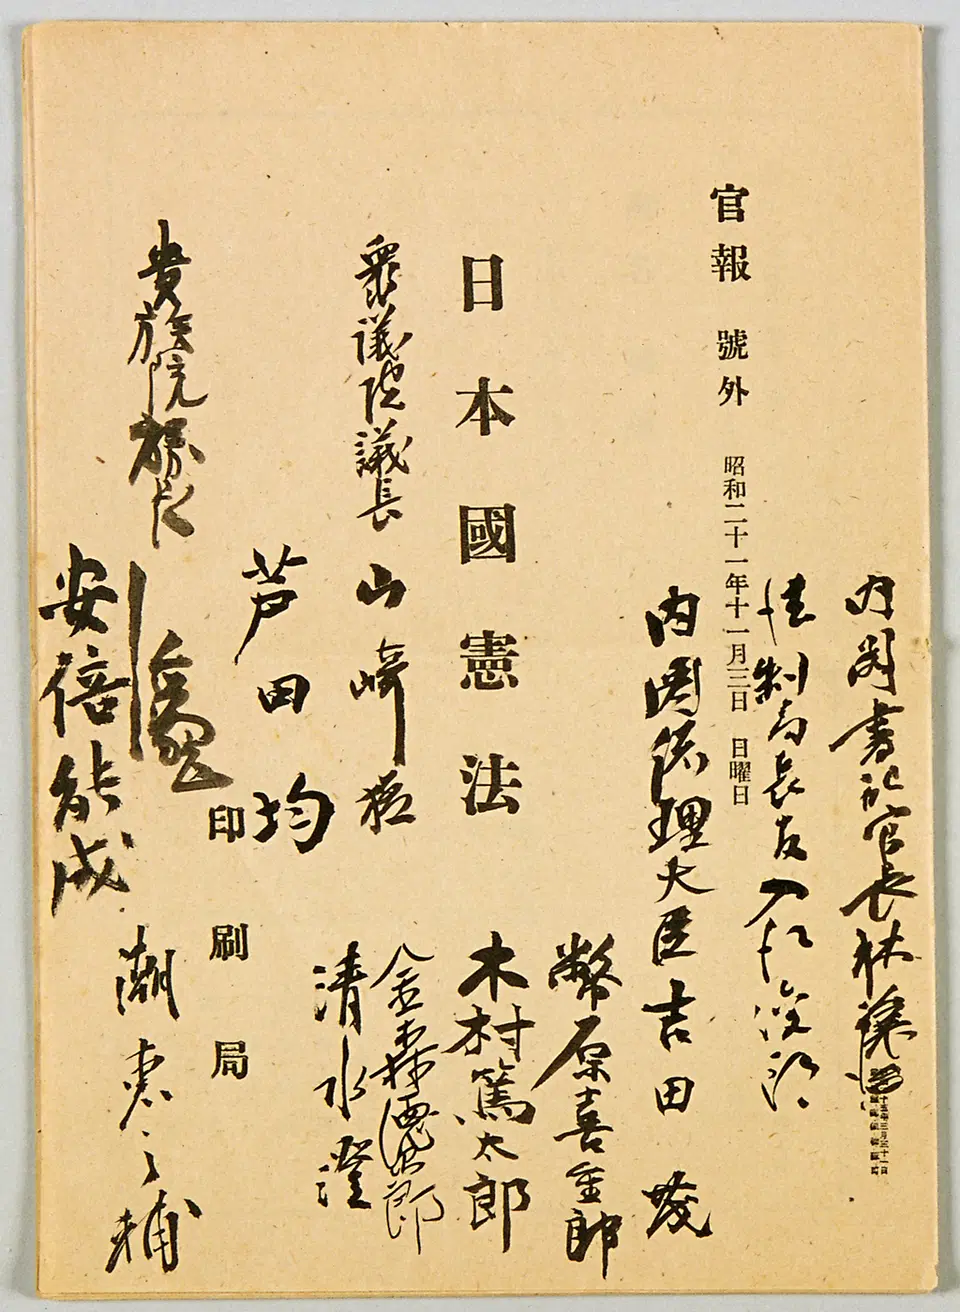 内閣書記官長林譲治
法制局長官入江俊郎
官報 號外 昭和二十一年十一月三日 日曜日
内閣総理大臣吉田茂
幣原喜重郎
日本國憲法
木村篤太郎
衆議院議長 山崎猛
金森徳次郎
芦田均
清水澄
印刷局
貴族院議長
安倍能成
潮恵之輔